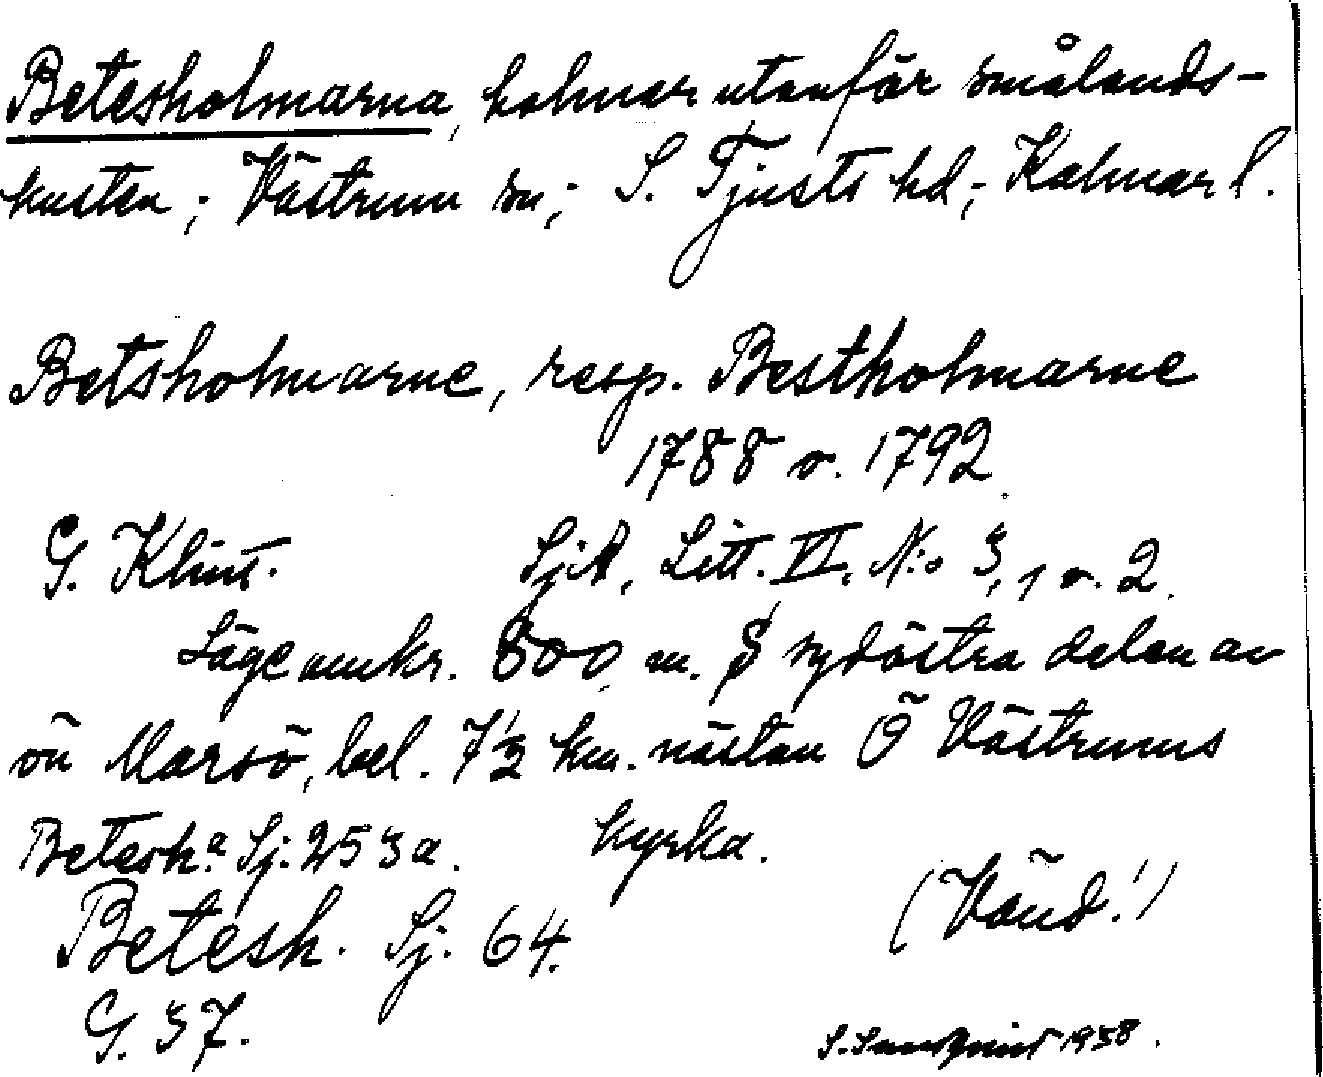 Betesholmarna, holmar utanför smålands-
kusten; Västrum sn; S. Tjusts hd; Kalmar l.
Betsholmarne, resp. Bestholmarne
1788 o. 1792.
G. Klint. SjA, Litt. VI, N:o 3, 1 o. 2.
Läge omkr. 800 m. S sydöstra delen av
ön Marsö, bel. 7 1/2 km. nästan Ö Västrums
kyrka.
Betesh:a Sj. 253a.
(Vänd!)
Betesh. Sj. 64.
G. 37.
1938.